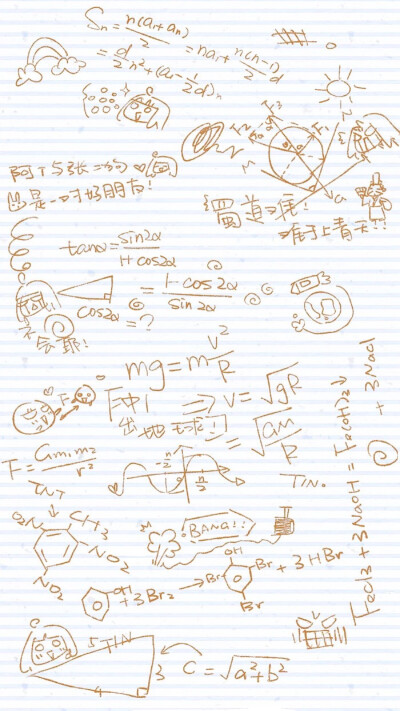 Sn = n(a1+an)/2 = na1 + n(n-1)/2 d
= d/2 n² + (a1 - 1/2 d)n
F3
F1
M
G
阿T与张二狗
也是一对好朋友!
蜀道难
难于上青天!!
tanα = sin2α/1+cos2α
= 1-cos2α/sin2α
cos2α = ?
不会耶!
mg = m v²/R
冲!
出地球! ⇒ v = √gR
= √GM/R
F
F = Gm1m2/r²
-π/2
π/2
TNT
TIN.
O2N
CH3
NO2
NO2
BANG!!
OH
+ 3Br2 →
OH
Br
Br
Br
+ 3HBr
FeCl3 + 3NaOH = Fe(OH)3↓ + 3NaCl
5TIN
3
4
C = √a²+b²